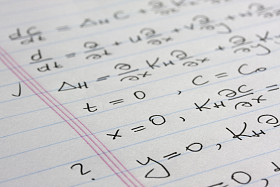 dC/dt = Δ_H C +
d/dt = ∂/∂t + u ∂/∂x + v ∂/∂y +
Δ_H = ∂/∂x K_H ∂/∂x + ∂/∂y
t = 0 , C = C₀
x = 0 , K_H ∂C/∂x =
2. y = 0 , K_H ∂
= 0 ,